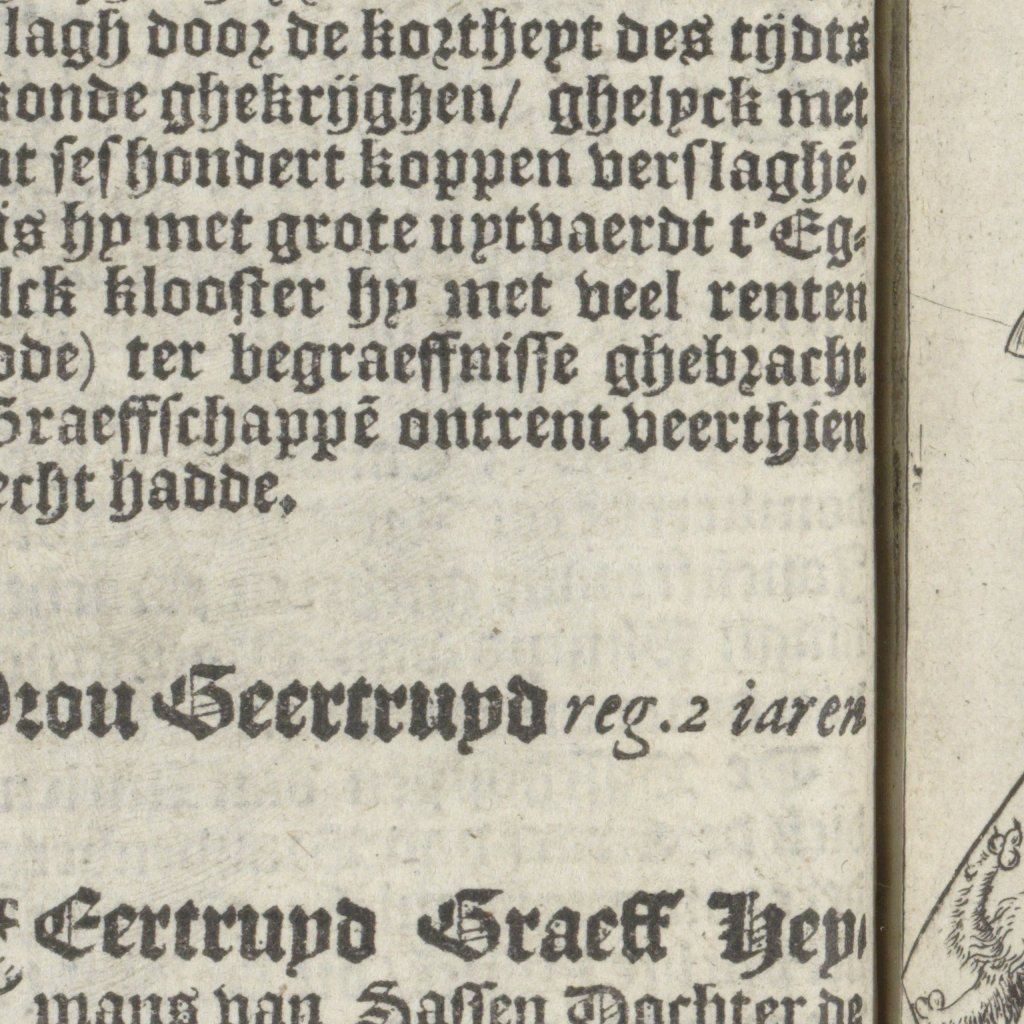 lagh door de kortheyt des tijdts
konde ghekrijghen/ ghelyck met
ſeſhondert koppen verſlaghẽ.
is hy met grote uytvaerdt t'Eg-
klooſter hy met veel renten
ter begraeffniſſe ghebracht
Graeffſchappẽ ontrent veerthien
hadde.
Vrou Geertruyd reg. 2 iaren
Eertruyd Graeff Hey-
mans van Saſſen Dochter de